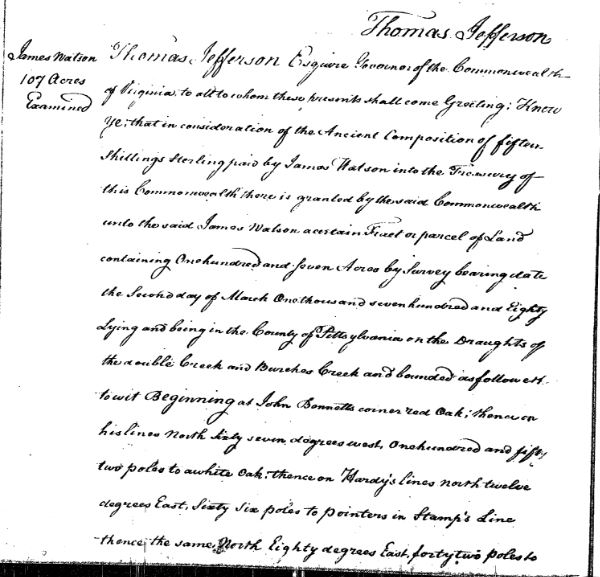 Thomas Jefferson
James Watson
107 Acres
Examined
Thomas Jefferson Esquire Governor of the Commonwealth
of Virginia to all to whom these presents shall come Greeting; Know
Ye; that in consideration of the Ancient Composition of fifteen
Shillings Sterling paid by James Watson into the Treasury of
this Commonwealth there is granted by the said Commonwealth
unto the said James Watson a certain Tract or parcel of Land
containing One hundred and Seven Acres by Survey bearing date
the Second day of March One thousand seven hundred and Eighty
Lying and being in the County of Pittsylvania on the Draughts of
the double Creek and Burches Creek and bounded as followeth
to wit Beginning at John Bennetts corner red Oak; thence on
his lines North Sixty seven, degrees west, One hundred and fifty
two poles to a white Oak; thence on Hardy's lines north twelve
degrees East, Sixty Six poles to pointers in Stamp's Line
thence the same, North Eighty degrees East, forty two poles to